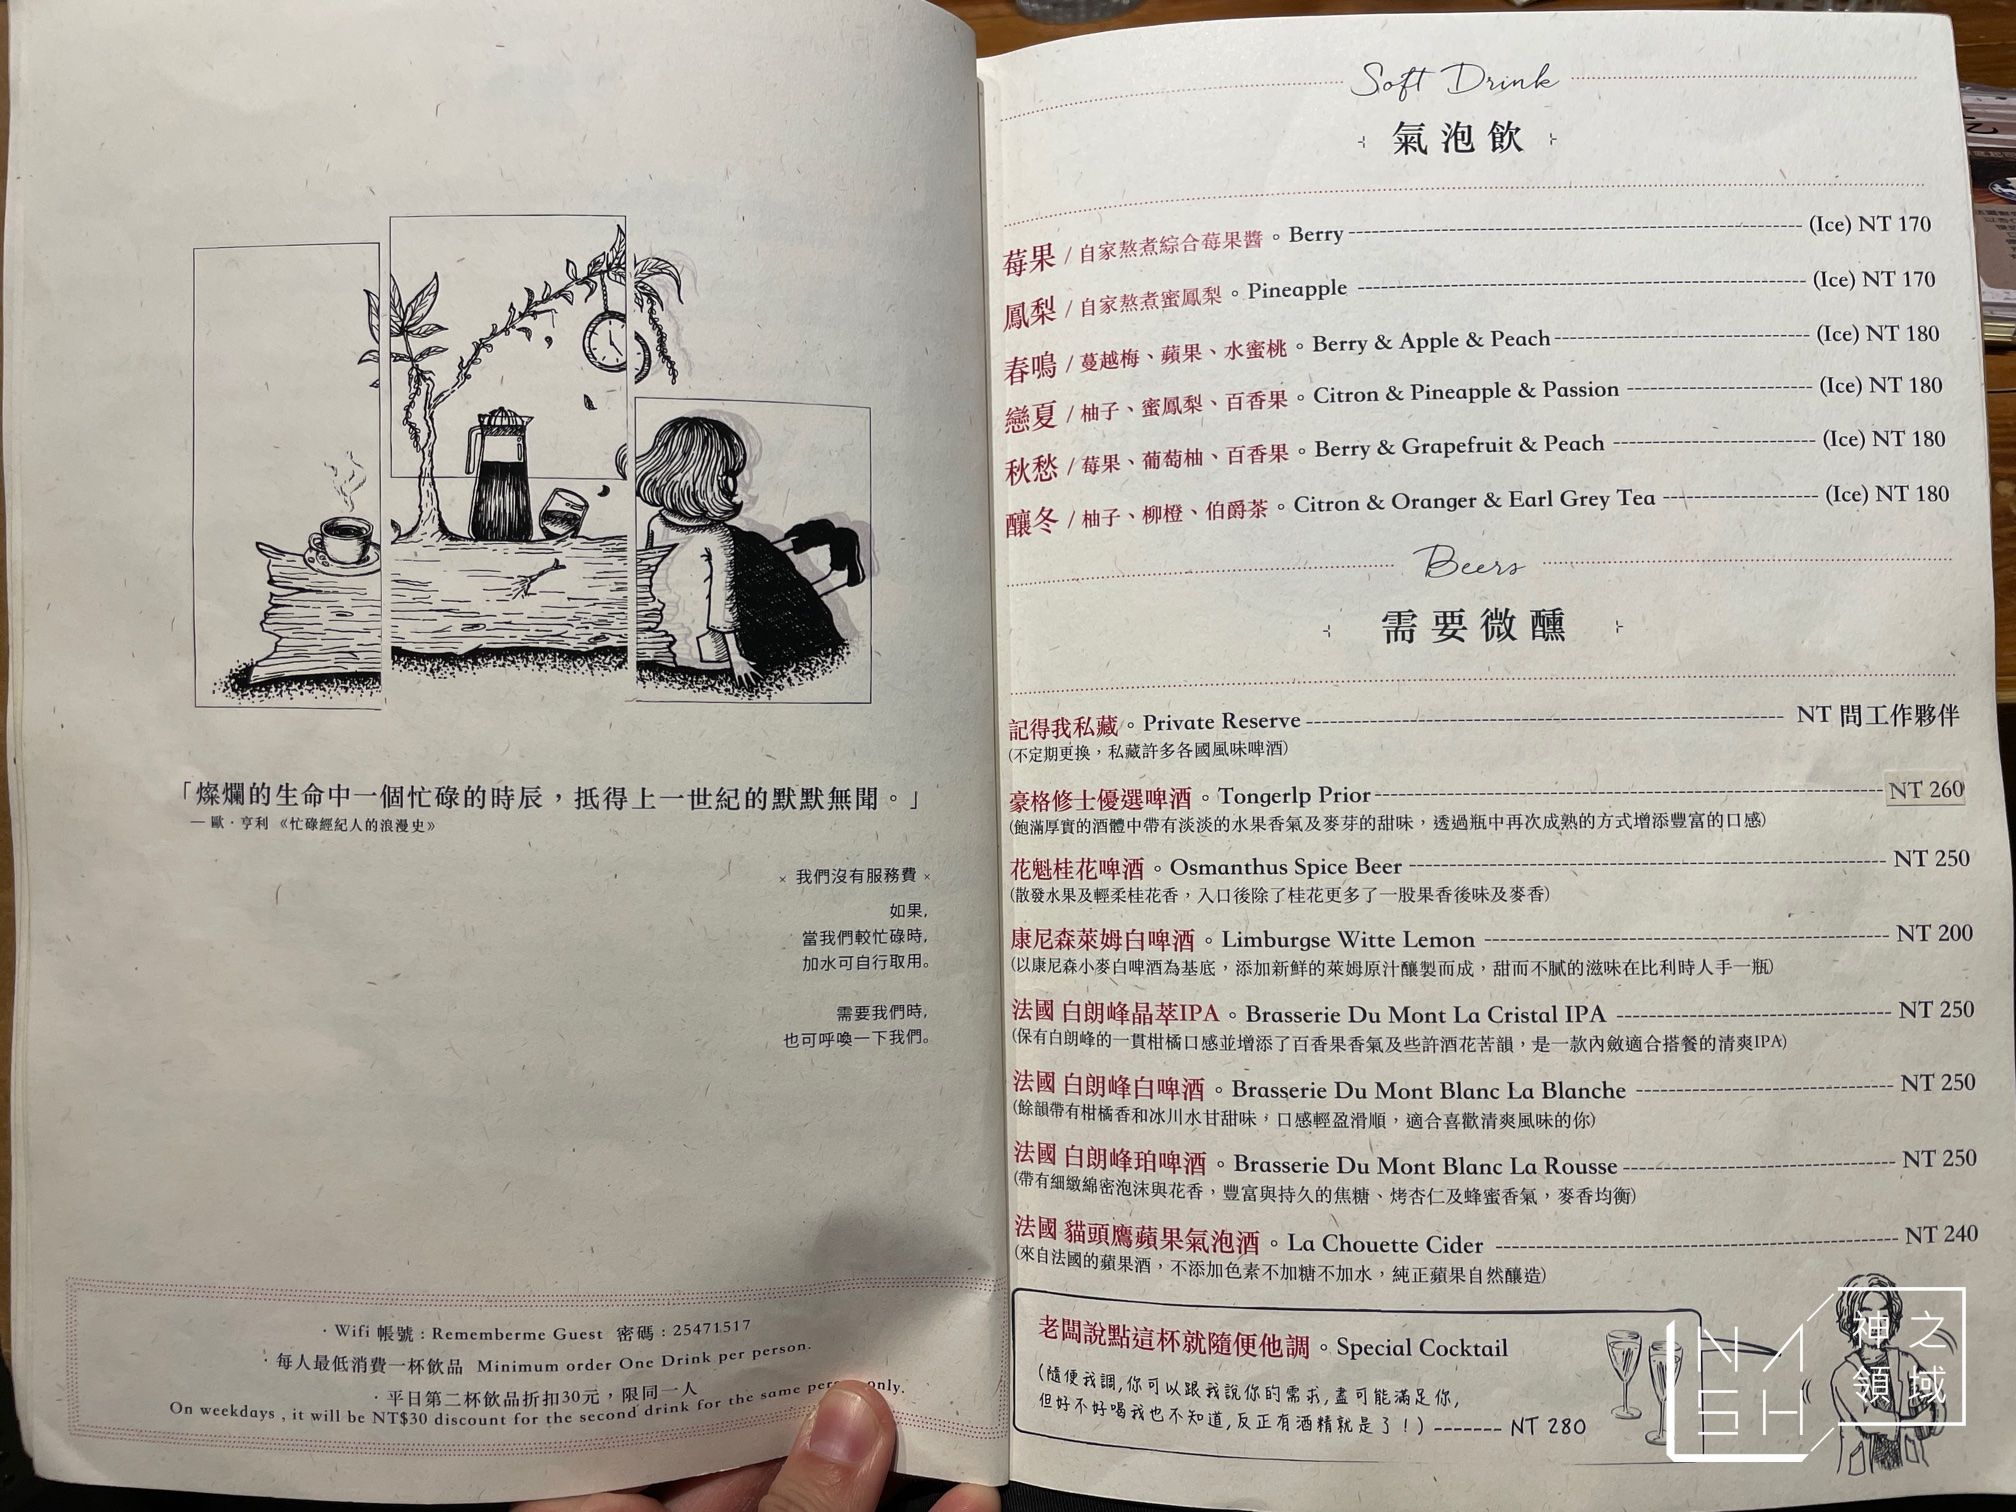 「燦爛的生命中一個忙碌的時辰，抵得上一世紀的默默無聞。」
— 歐·亨利《忙碌經紀人的浪漫史》
× 我們沒有服務費 ×
如果,
當我們較忙碌時,
加水可自行取用。
需要我們時,
也可呼喚一下我們。
· Wifi 帳號：Rememberme Guest 密碼：25471517
· 每人最低消費一杯飲品 Minimum order One Drink per person.
· 平日第二杯飲品折扣30元，限同一人
On weekdays , it will be NT$30 discount for the second drink for the same person only.
Soft Drink
氣泡飲
莓果 / 自家熬煮綜合莓果醬。Berry (Ice) NT 170
鳳梨 / 自家熬煮蜜鳳梨。Pineapple (Ice) NT 170
春鳴 / 蔓越梅、蘋果、水蜜桃。Berry & Apple & Peach (Ice) NT 180
戀夏 / 柚子、蜜鳳梨、百香果。Citron & Pineapple & Passion (Ice) NT 180
秋愁 / 莓果、葡萄柚、百香果。Berry & Grapefruit & Peach (Ice) NT 180
釀冬 / 柚子、柳橙、伯爵茶。Citron & Oranger & Earl Grey Tea (Ice) NT 180
Beers
需要微醺
記得我私藏。Private Reserve NT 問工作夥伴
(不定期更換，私藏許多各國風味啤酒)
豪格修士優選啤酒。Tongerlp Prior NT 260
(飽滿厚實的酒體中帶有淡淡的水果香氣及麥芽的甜味，透過瓶中再次成熟的方式增添豐富的口感)
花魁桂花啤酒。Osmanthus Spice Beer NT 250
(散發水果及輕柔桂花香，入口後除了桂花更多了一股果香後味及麥香)
康尼森萊姆白啤酒。Limburgse Witte Lemon NT 200
(以康尼森小麥白啤酒為基底，添加新鮮的萊姆原汁釀製而成，甜而不膩的滋味在比利時人手一瓶)
法國 白朗峰晶萃IPA。Brasserie Du Mont La Cristal IPA NT 250
(保有白朗峰的一貫柑橘口感並增添了百香果香氣及些許酒花苦韻，是一款內斂適合搭餐的清爽IPA)
法國 白朗峰白啤酒。Brasserie Du Mont Blanc La Blanche NT 250
(餘韻帶有柑橘香和冰川水甘甜味，口感輕盈滑順，適合喜歡清爽風味的你)
法國 白朗峰珀啤酒。Brasserie Du Mont Blanc La Rousse NT 250
(帶有細緻綿密泡沫與花香，豐富與持久的焦糖、烤杏仁及蜂蜜香氣，麥香均衡)
法國 貓頭鷹蘋果氣泡酒。La Chouette Cider NT 240
(來自法國的蘋果酒，不添加色素不加糖不加水，純正蘋果自然釀造)
老闆說點這杯就隨便他調。Special Cocktail
(隨便我調,你可以跟我說你的需求,盡可能滿足你,
但好不好喝我也不知道,反正有酒精就是了！) NT 280
NASH
神之
領域